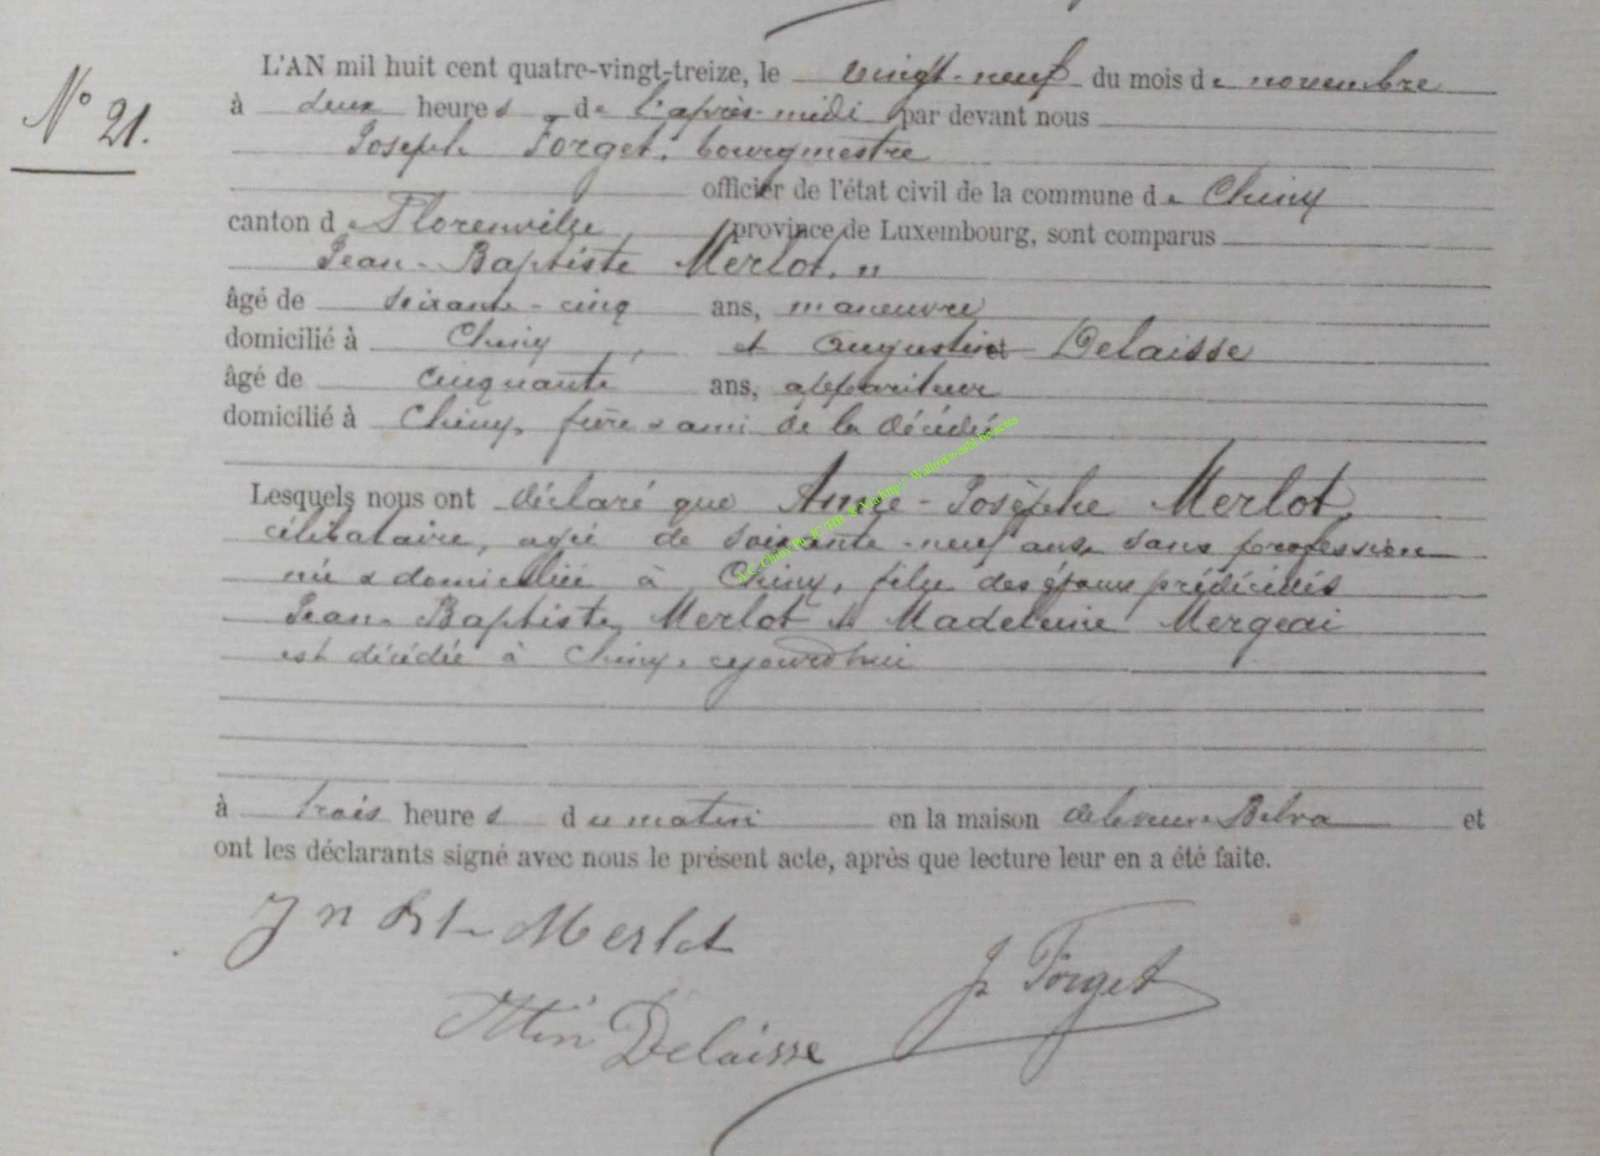 L'AN mil huit cent quatre-vingt-treize, le vingt-neuf du mois de novembre
N° 21.
à deux heures de l'après-midi par devant nous
Joseph Forget, bourgmestre
officier de l'état civil de la commune de Chiny
canton de Florenville, province de Luxembourg, sont comparus
Jean-Baptiste Merlot, "
âgé de soixante-cinq ans, manœuvre
domicilié à Chiny, et Augustin Delaisse
âgé de cinquante ans, appariteur
domicilié à Chiny, frère & ami de la décédée
Lesquels nous ont déclaré que Anne-Josèphe Merlot,
célibataire, agée de soixante-neuf ans, sans profession
née & domiciliée à Chiny, fille des époux prédécédés
Jean-Baptiste Merlot & Madeleine Mergeai
est décédée à Chiny, cejourd'hui
à trois heures du matin en la maison de la veuve Belva et
ont les déclarants signé avec nous le présent acte, après que lecture leur en a été faite.
Jn Bte Merlot
J. Forget
Delaisse